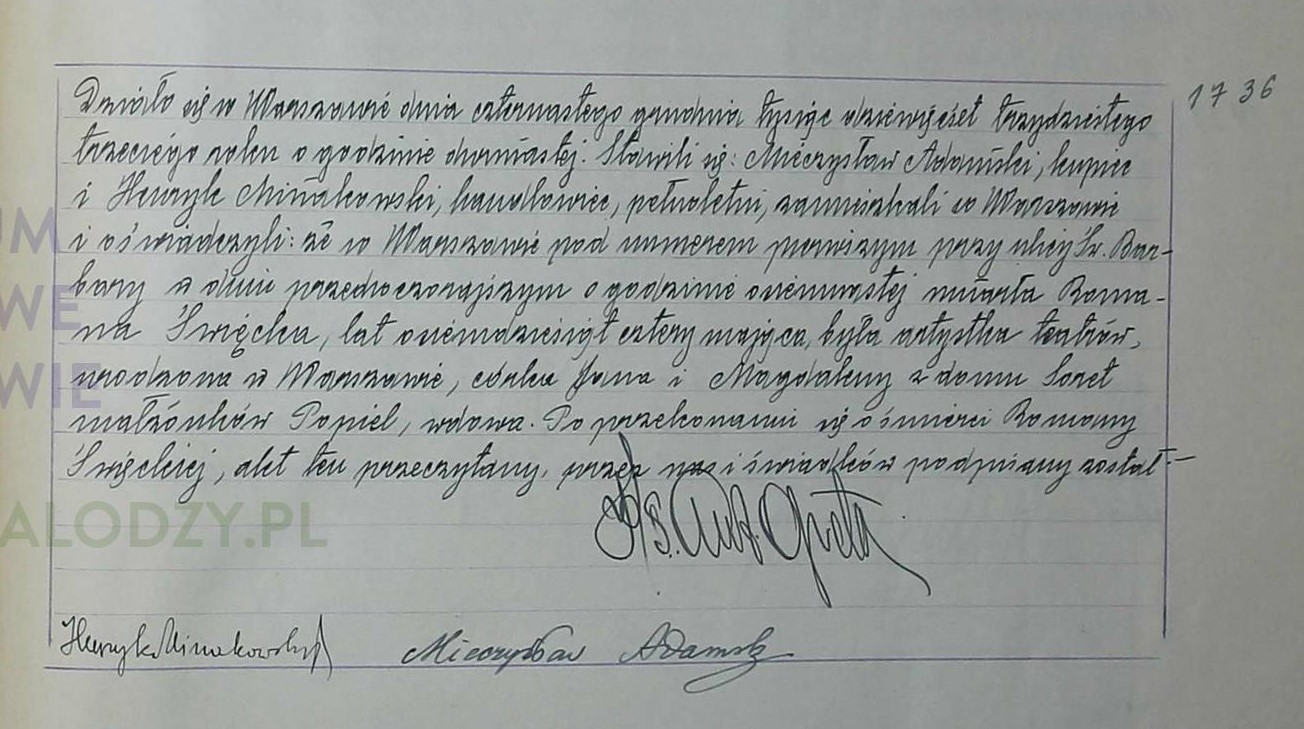 1736
Działo się w Warszawie dnia czternastego grudnia tysiąc dziewięćset trzydziestego
trzeciego roku o godzinie dwunastej. Stawili się: Mieczysław Adamski, kupiec
i Henryk Minakowski, handlowiec, pełnoletni, zamieszkali w Warszawie
i oświadczyli: że w Warszawie pod numerem pierwszym przy ulicy Św. Bar-
bary w dniu przedwczorajszym o godzinie osiemnastej umarła Roma-
na Święcka, lat osiemdziesiąt cztery mająca, była artystka teatrów,
urodzona w Warszawie, córka Jana i Magdaleny z domu Soret
małżonków Popiel, wdowa. Po przekonaniu się o śmierci Romany
Święckiej, akt ten przeczytany, przez nas i świadków podpisany został.—
Ks. Ant.
Henryk Minakowski Mieczysław Adamski
UM
WE
WIE
ALODZY.PL